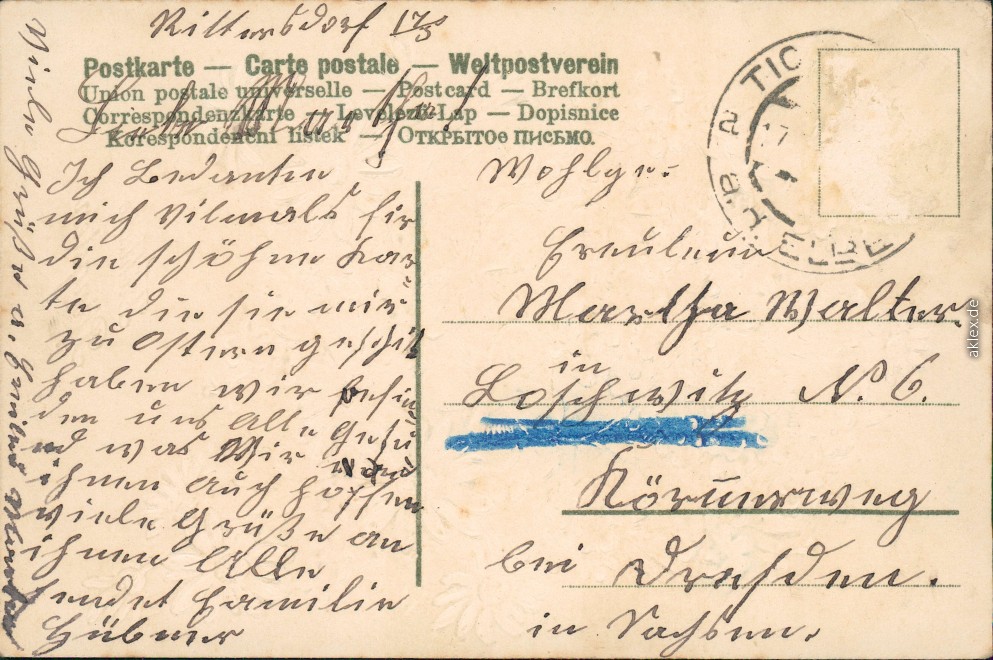 Rittersdorf 17/5
Postkarte — Carte postale — Weltpostverein
Union postale universelle — Post card — Brefkort
Correspondenzkarte — Levelező-Lap — Dopisnice
Korespondenční lístek — ОТКРЫТОЕ ПИСЬМО.
Ich Bedanken
mich vilmals für
die schöhne Kar
te die sie mir
zu Ostern geschik
haben wir befin
den uns Alle Gesu
nd was Wir von
ihnen auch hoffen
viele Grüße an
ihnen Alle
sendet Familie
Hübner
Viele Grüße a.
Wohlge.
Freulein
Martha Walter.
in
Loschwitz No 6.
Körnerweg
bei Dresden.
in Sachsen.
ELBE
17
aklex.de